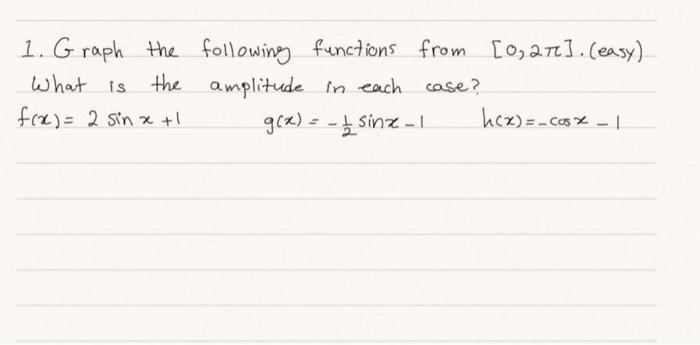 1. Graph the following functions from [0,2π]. (easy)
What is the amplitude in each case?
f(x) = 2 sin x + 1 g(x) = -1/2 sin x - 1 h(x) = -cos x - 1